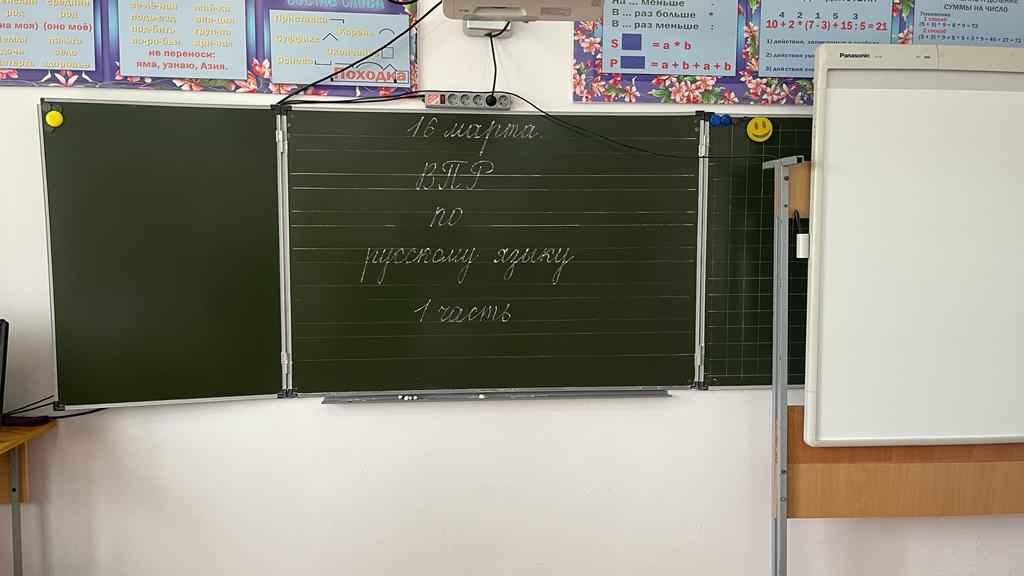 род
род
на моя)
(оно моё)
село
здоровье
зе-лё-ная
май-ка
подъ-езд
эка-ция
под-бить
груп-па
во-ро-бьи
кри-чал
не переноси:
яма, узнаю, Азия.
СОСТАВ СЛОВА
Приставка
Корень
Суффикс
Окончание
Основа
Походка
На ... меньше -
В ... раз больше *
В ... раз меньше :
S = a * b
P = a + b + a + b
4 2 5 1 5 3
10 + 2 * (7 - 3) + 15 : 5 = 21
СУММЫ НА ЧИСЛО
1 способ
(5 + 3) * 9 = 8 * 9 = 72
2 способ
(5 + 3) * 9 = 5 * 9 + 3 * 9 = 45 + 27 = 72
Panasonic
16 марта.
ВПР
по
русскому языку
1 часть